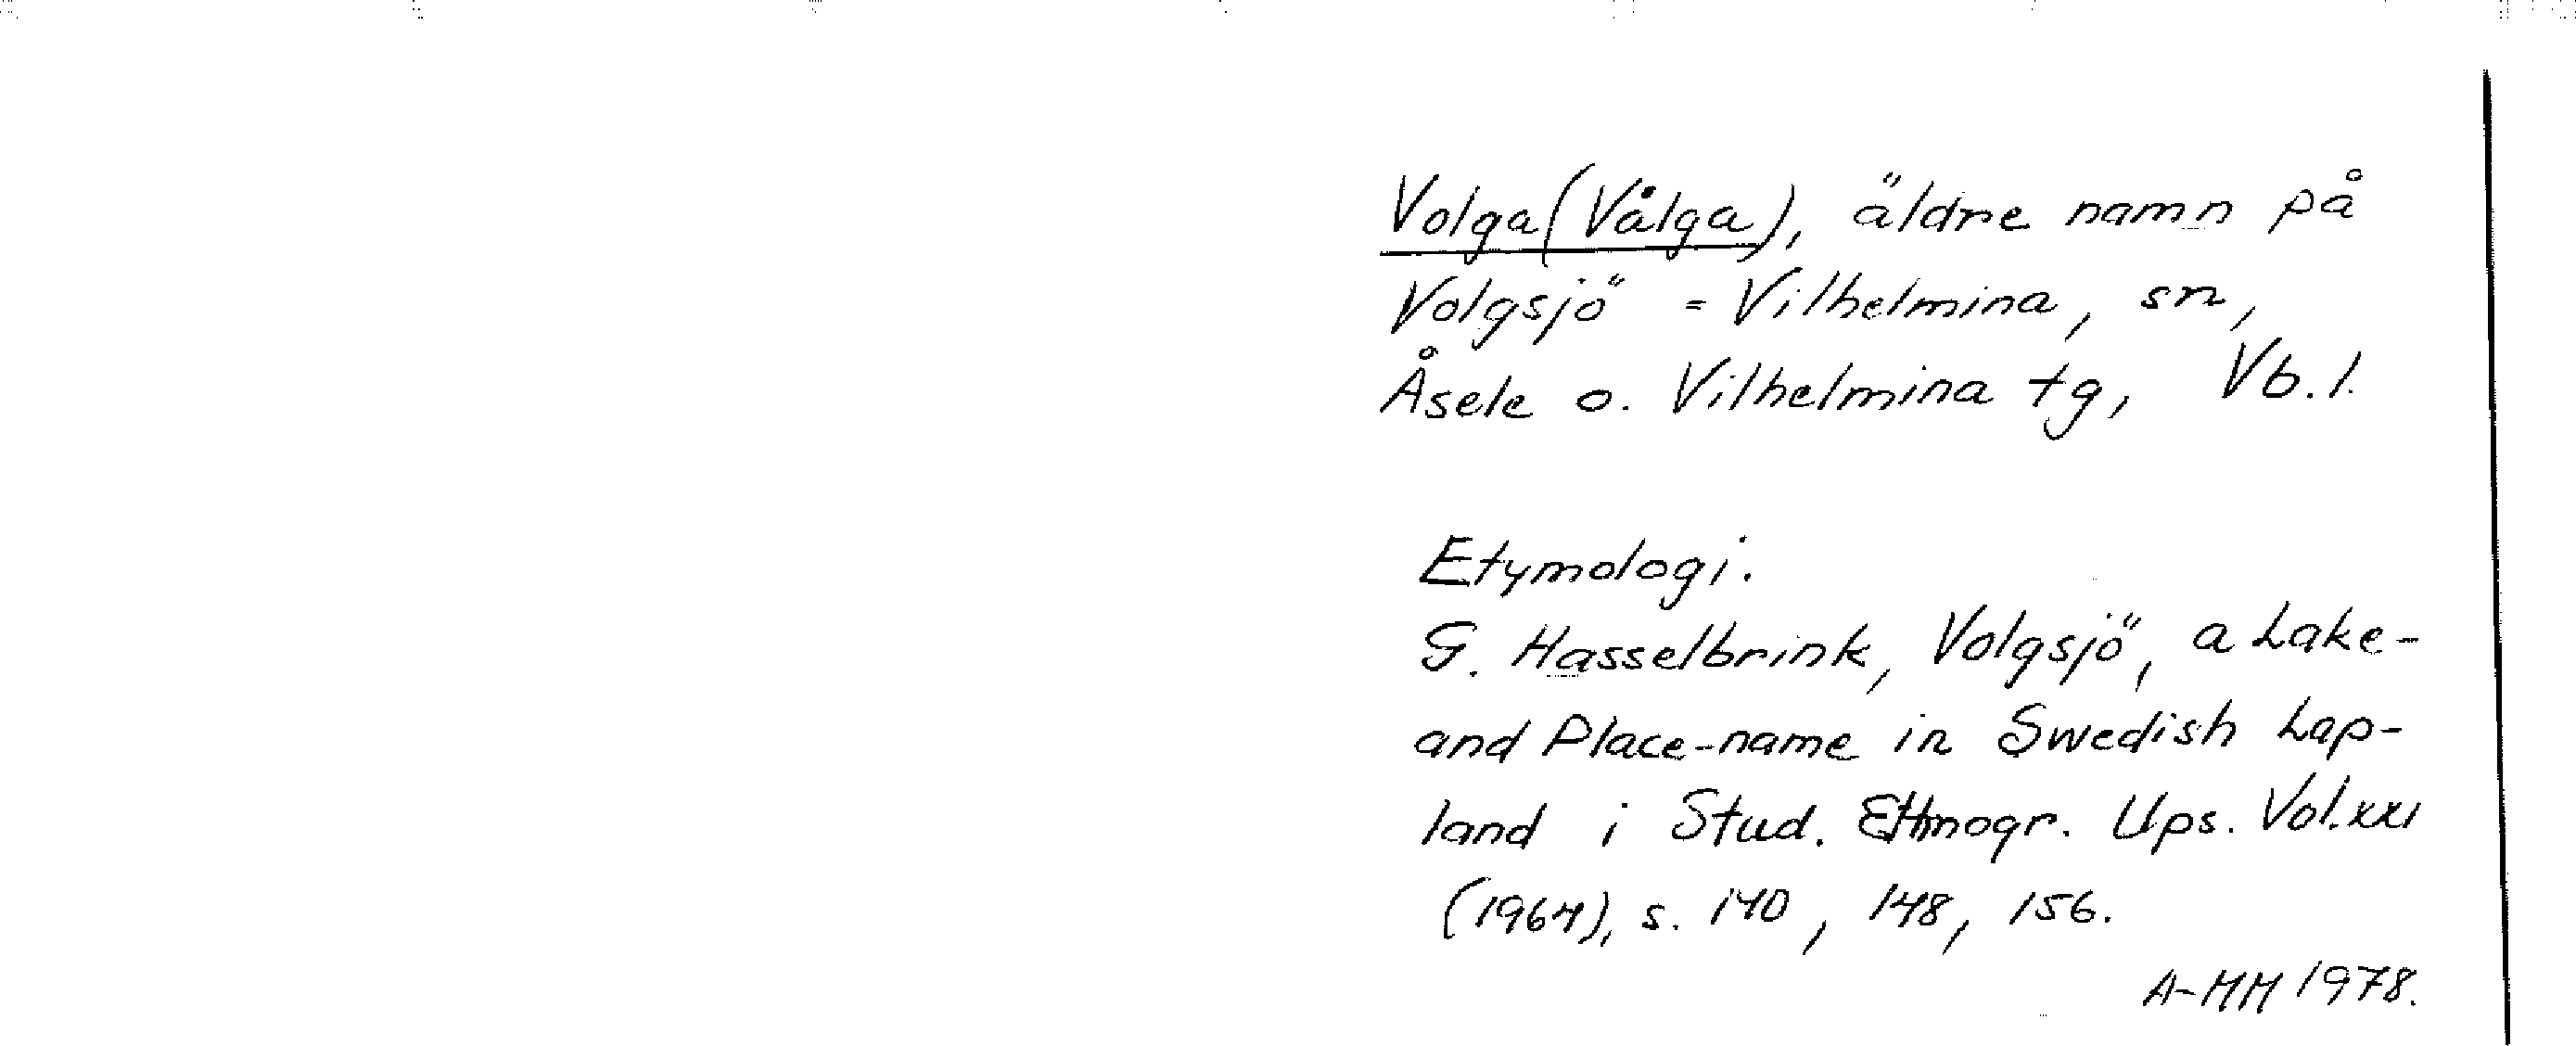 Volga (Vålga), äldre namn på
Volgsjö = Vilhelmina, sn,
Åsele o. Vilhelmina tg, Vb. l.
Etymologi.
G. Hasselbrink, Volgsjö, a Lake-
and Place-name in Swedish Lap-
land i Stud. Ethnogr. Ups. Vol. XXI
(1964), s. 140, 148, 156.
A-MM 1978.